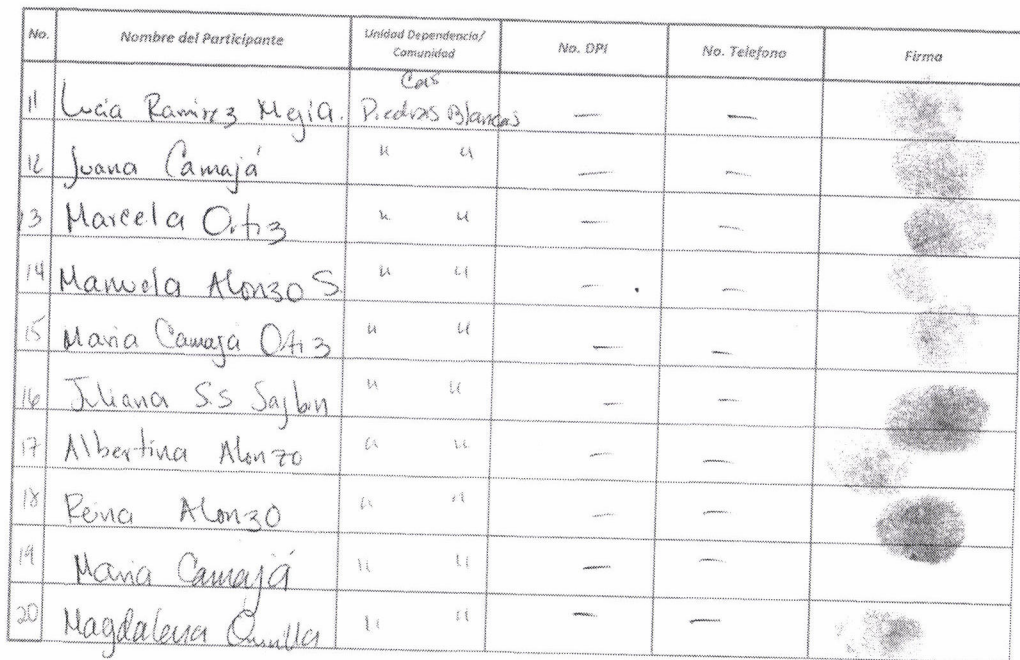 No. Nombre del Participante Unidad Dependencia/ Comunidad No. DPI No. Telefono Firma
Cas
11 Lucia Ramirez Mejia. Piedras Blancas — —
12 Juana Camajá " " — —
13 Marcela Ortiz " " — —
14 Manuela Alonzo S. " " — —
15 Maria Camaja Ortiz " " — —
16 Juliana S.S " " — —
17 Albertina Alonzo " " — —
18 Reina Alonzo " " — —
19 Maria Camajá " " — —
20 Magdalena " " — —